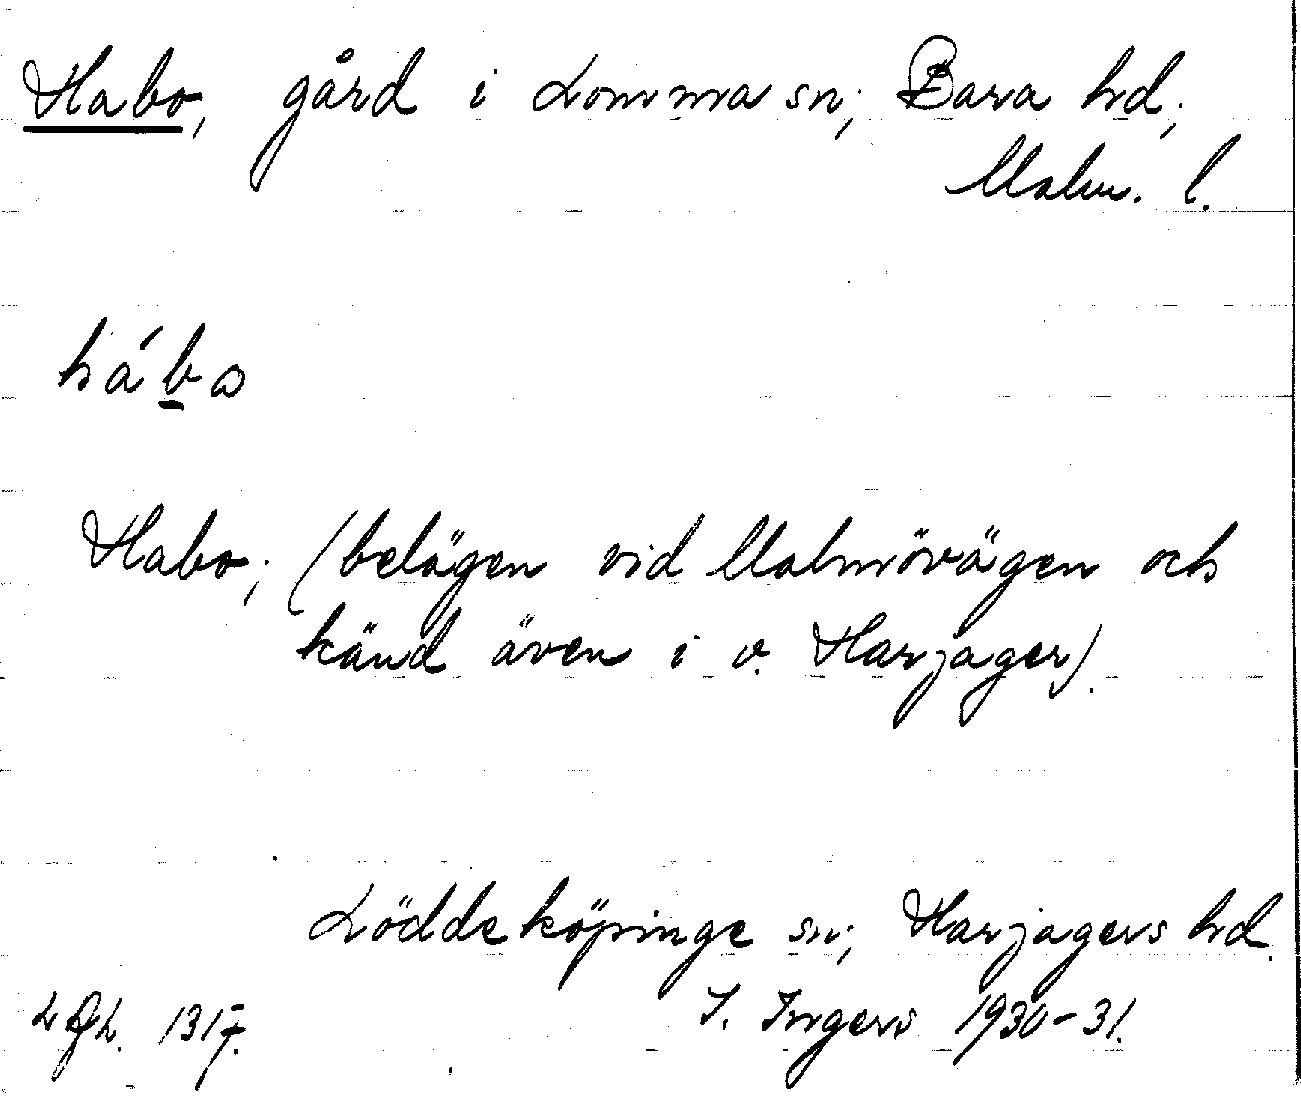 Habo, gård i Lomma sn; Bara hd;
Malm. l.
háb̲o
Habo; (belägen vid Malmövägen och
känd även i v. Harjager).
Löddeköpinge sn; Harjagers hd.
I. Ingers 1930-31.
1317.